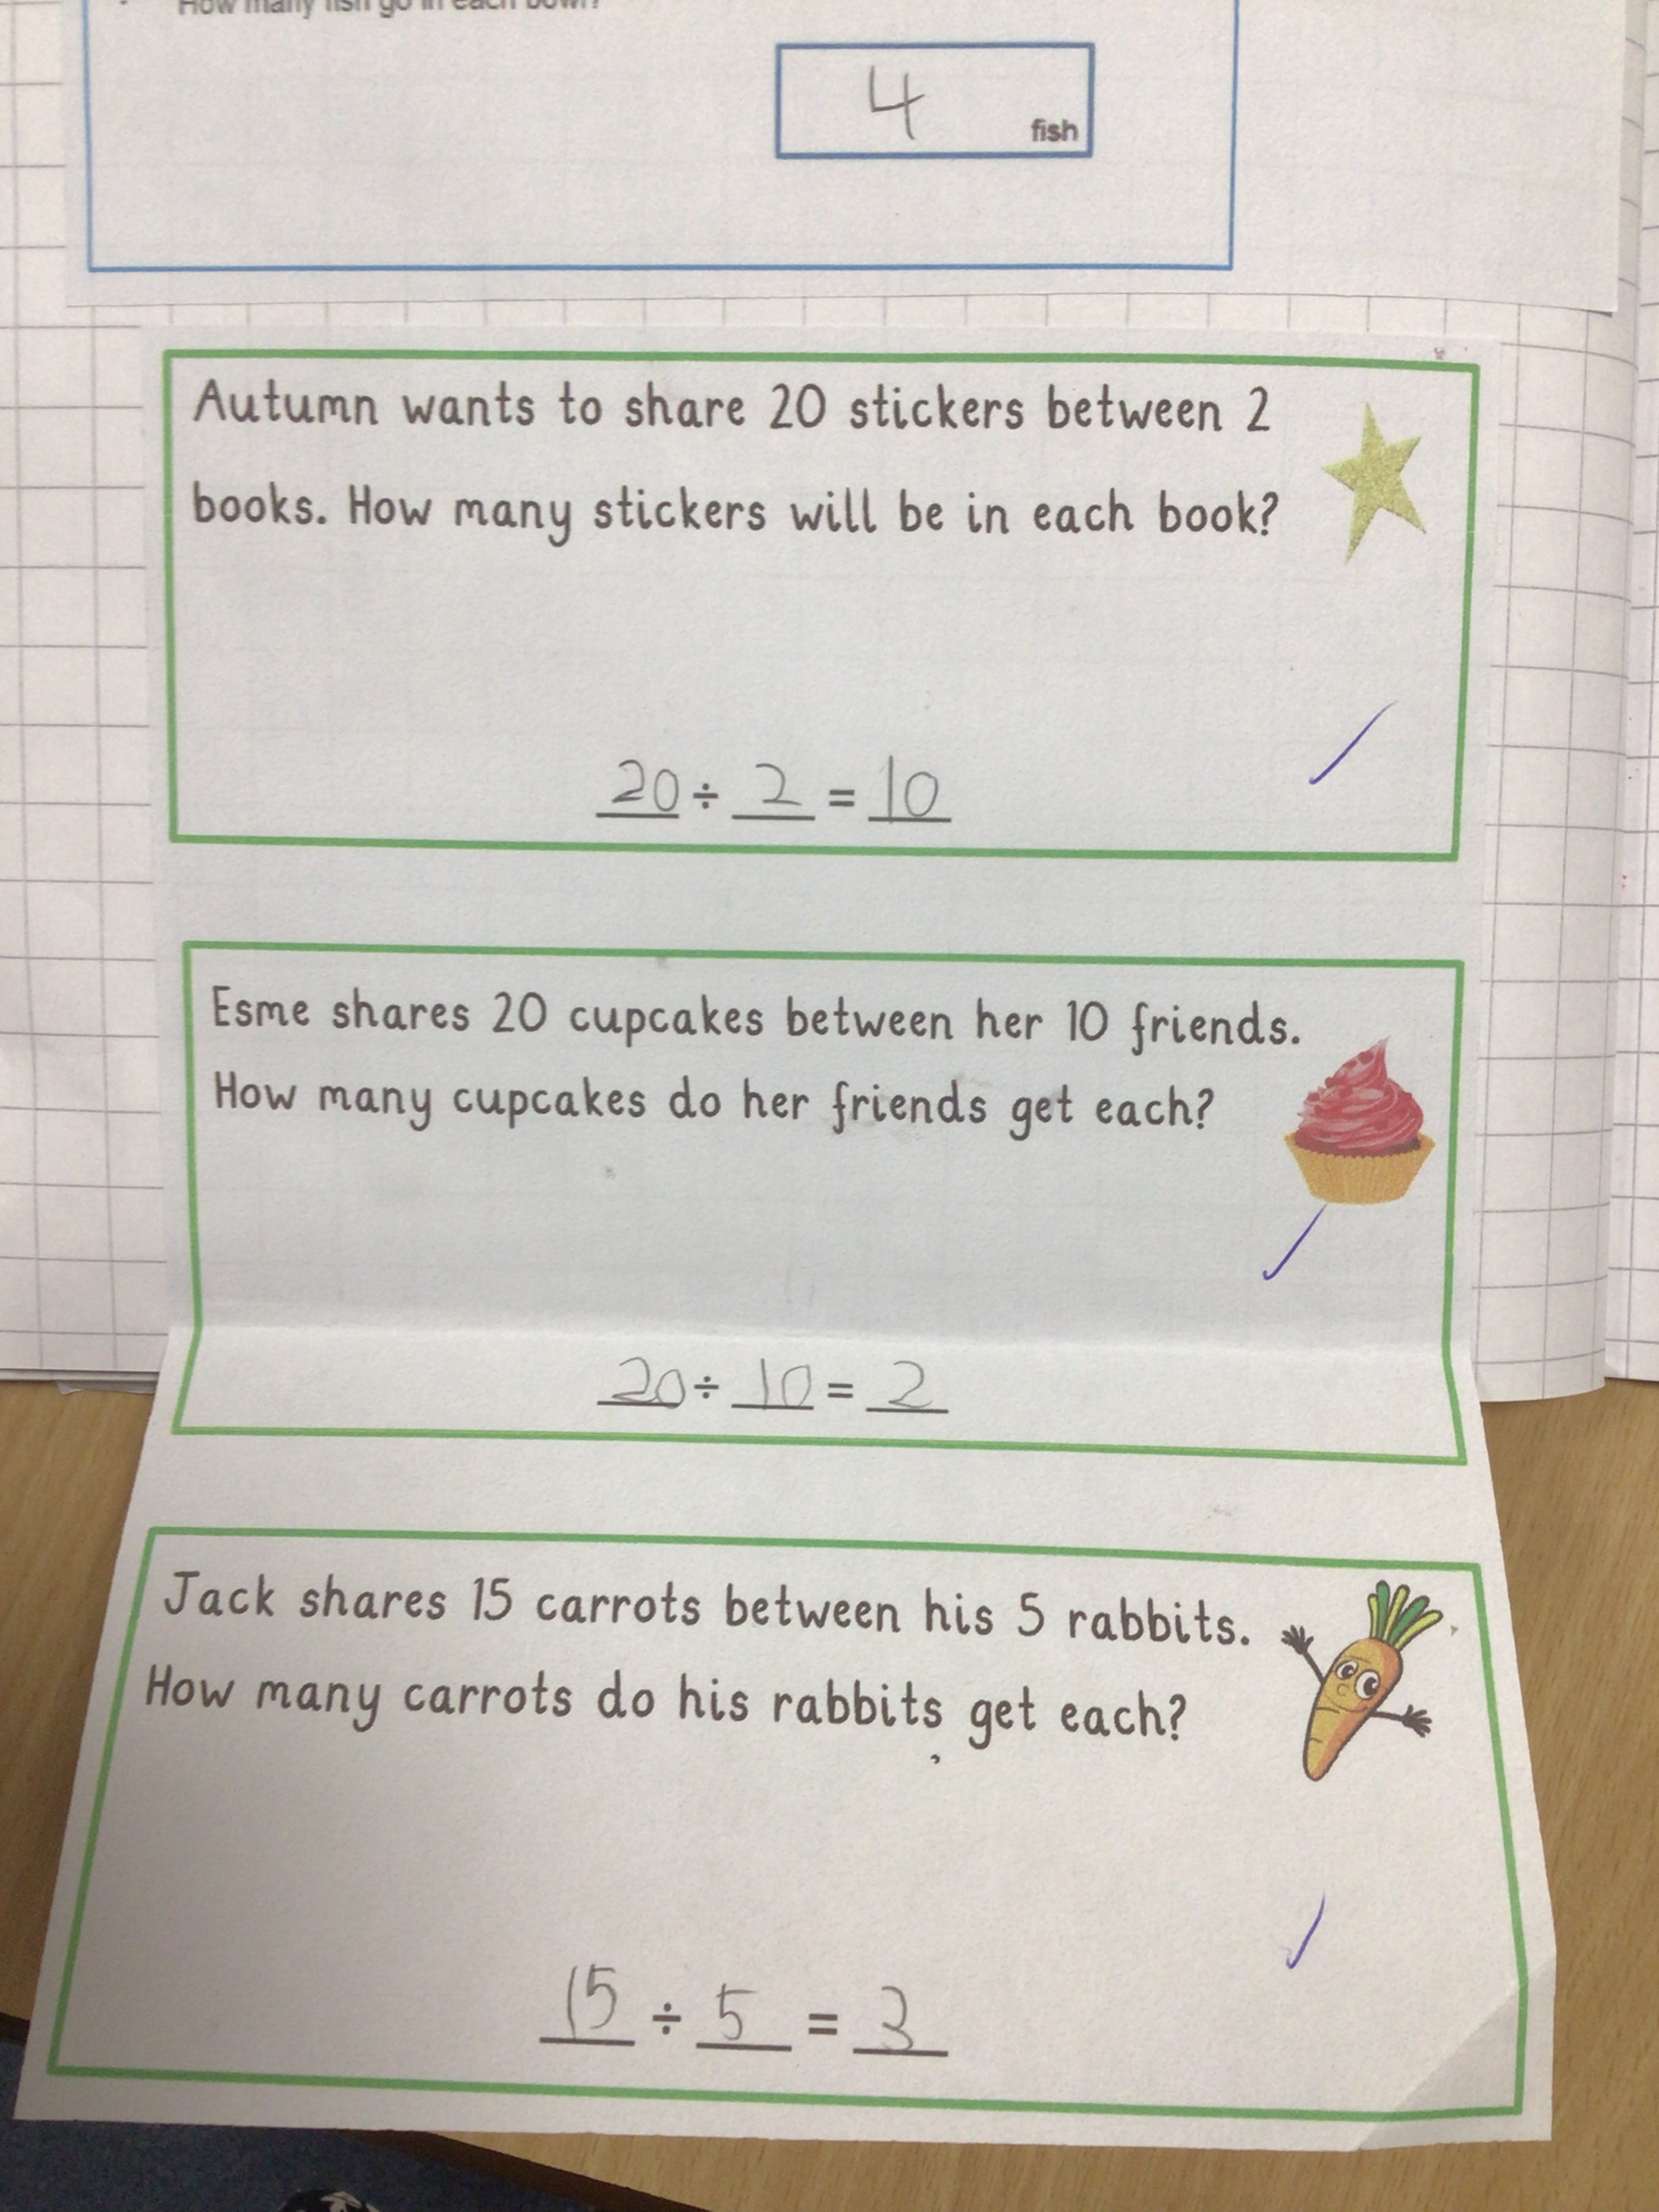 How many fish go in each bowl?
4 fish
Autumn wants to share 20 stickers between 2
books. How many stickers will be in each book?
20 ÷ 2 = 10
Esme shares 20 cupcakes between her 10 friends.
How many cupcakes do her friends get each?
20 ÷ 10 = 2
Jack shares 15 carrots between his 5 rabbits.
How many carrots do his rabbits get each?
15 ÷ 5 = 3